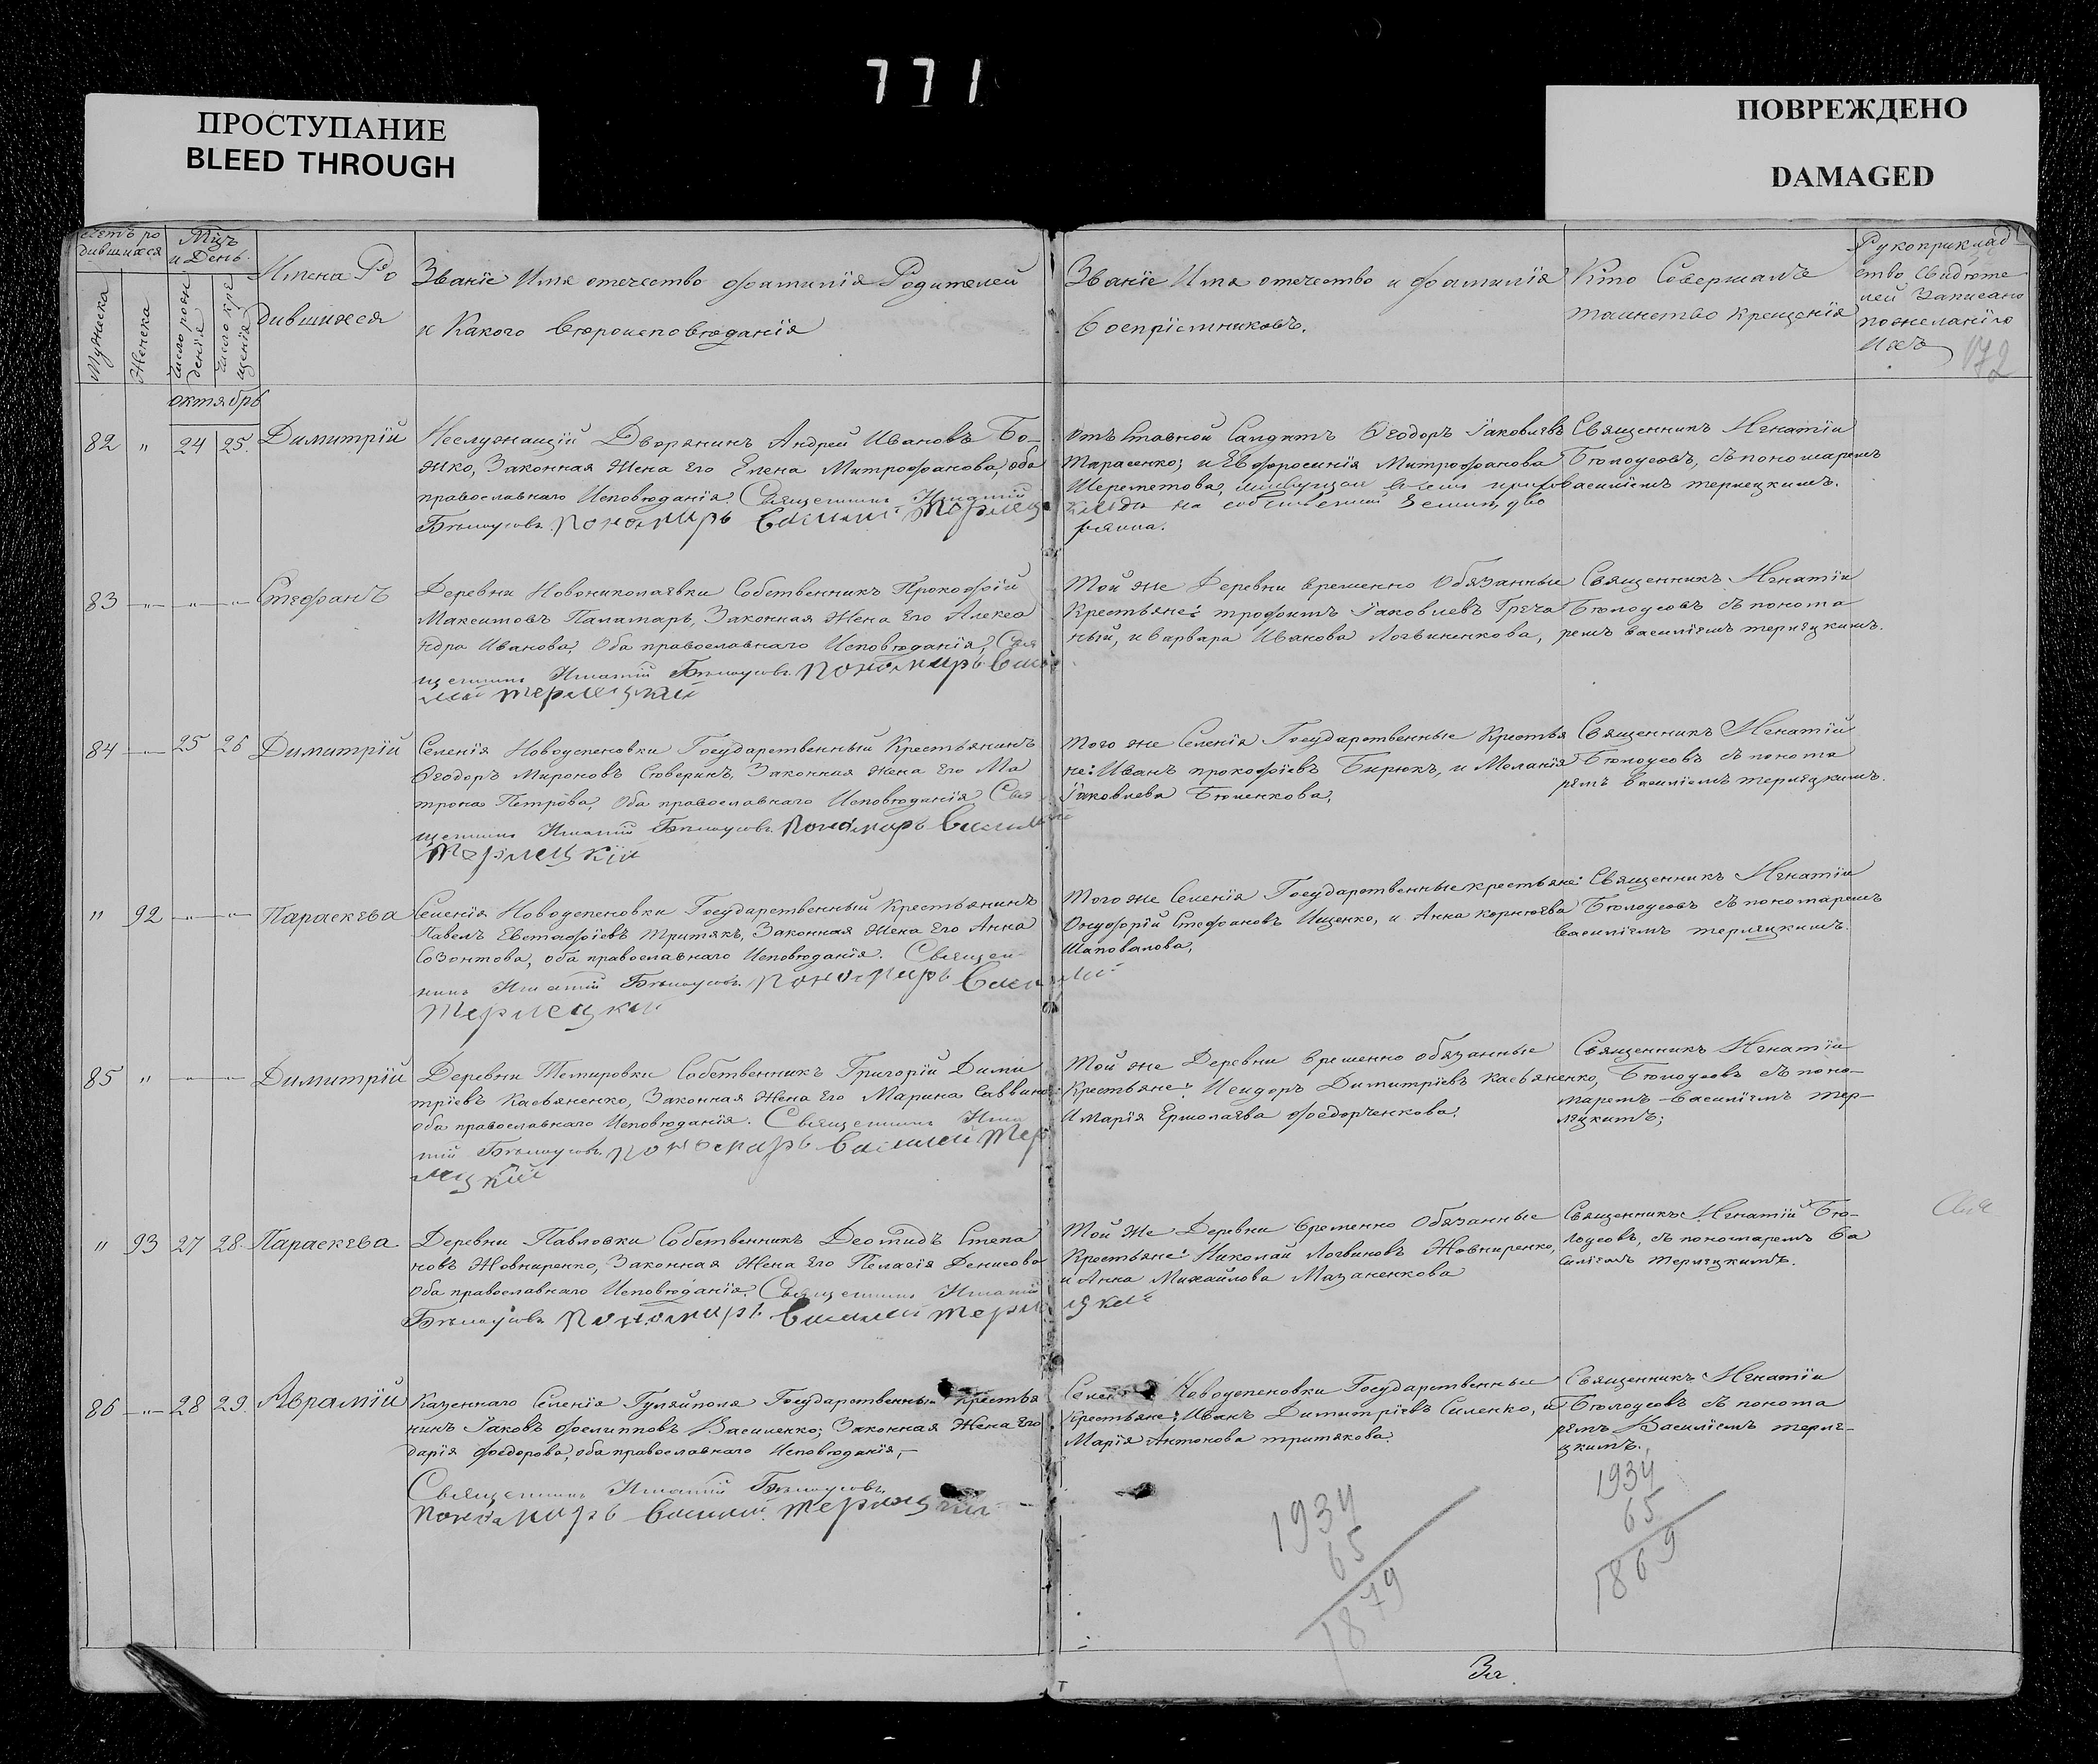 771
ПРОСТУПАНИЕ
BLEED THROUGH
ПОВРЕЖДЕНО
DAMAGED
Счетъ ро
дившихся
Мужска
Женска
Мцъ
и День
Число рож
денія
Число кре
щенія
Имена Ро
дившихся
Званіе Имя отечество фамилія Родителей
и Какого Вѣроисповѣданія
Званіе Имя отечество и фамилія
Воспріемниковъ.
Кто Совершалъ
таинство крещенія
Рукоприклад
ство свидѣте
лей Записано
пожеланію
Ихъ
172
октябрь
82 " 24 25. Димитрій
Неслужащій Дворянинъ Андрей Ивановъ Бо-
жко, Законная Жена Его Елена Митрофанова, оба
православнаго Исповѣданія Священникъ Игнатій
Бѣлоусовъ Пономарь Василий Терлец
Отъ Ставной Салдатъ Ѳеодоръ Іаковлевъ
Тарасенко; и Евфросинія Митрофанова
Шереметова,
на собственной Земли, дво
рянка.
Священникъ Игнатіи
Бѣлоусовъ, съ пономаремъ
василіемъ терлецкимъ.
83 " " " Стефанъ
Деревни Новониколаевки Собственникъ Прокофій
Максимовъ Паламаръ, Законная Жена Его Алекса
ндра Иванова Оба православнаго Исповѣданія, Свя
щенникъ Игнатій Бѣлоусовъ Пономирь Васи
лий терлецкий
Той же Деревни временно Обязанные
Крестьяне: трофимъ Іаковлевъ Греча
ный, и варвара Иванова Логвиненкова,
Священникъ Игнатіи
Бѣлоусовъ съ понома
ремъ василіемъ терлецкимъ.
84 " 25 26 Димитрій
Селенія Новоуспеновки Государственный Крестьянинъ
Ѳеодоръ Мироновъ Сѣверинъ, Законная жена Его Ма
трона Петрова, Оба православнаго Исповѣданія Свя
щенникъ Игнатій Бѣлоусовъ Пономарь Василий
Терлецкій
Того же Селенія Государственные Крестья
не: Иванъ прокофіевъ Бирюкъ, и Меланія
Іаковлева Бѣленкова,
Священникъ Игнатій
Бѣлоусовъ съ понома
ремъ василіемъ терлецкимъ.
" 92 " " Параскева
Селенія Новоуспеновки Государственный Крестьянинъ
Павелъ Евстафіевъ Тритякъ, Законная Жена Его Анна
Созонтова, оба православнаго Исповѣданія. Священ
никъ Игнатій Бѣлоусовъ Пономарь Василий
Терлецкий
Того же Селенія Государственные крестьяне:
Онуфрій Стефановъ Ищенко, и Анна корнѣева
Шаповалова,
Священникъ Игнатіи
Бѣлоусовъ съ пономаремъ
василіемъ терлецкимъ.
85 " " " Димитрій
Деревни Темировки Собственникъ Григорій Дими
тріевъ Касьяненко, Законная Жена Его Марина Саввина:
Оба православнаго Исповѣданія. Священникъ Игна
тій Бѣлоусовъ Пономарь Василий Тер
лецкий
Той же Деревни временно обязанные
Крестьяне: Исидоръ Димитріевъ касьяненко,
И Марія Ермолаева фёдорченкова;
Священникъ Игнатіи
Бѣлоусовъ съ поно-
маремъ василіемъ тер-
лецкимъ;
" 93 27 28. Параскева
Деревни Павловки Собственникъ Деомидъ Степа
новъ Жовниренко, Законная Жена Его Пелагія Денисова
Оба православнаго Исповѣданія. Священникъ Игнатій
Бѣлоусовъ Пономирь Василий терлецкий
Той Же Деревни временно Обязанные
Крестьяне: Николай Логвиновъ Жовниренко,
и Анна Михайлова Мазаненкова
Священникъ Игнатій Бѣ-
лоусовъ, съ пономаремъ Ва
силіемъ терлецкимъ.
86 " 28 29. Аврамій
Казеннаго Селенія Гуляйполя Государственный крестья
нинъ Іаковъ Филипповъ Василенко; Законная Жена Его
дарія Фёдорова, оба православнаго Исповѣданія,
Священникъ Игнатій Бѣлоусовъ
пономирь Василий терлецкий
Селенія Новоуспеновки Государственные
Крестьяне: Иванъ Димитріевъ Силенко, и
Марія Антонова тритякова.
Священникъ Игнатіи
Бѣлоусовъ съ понома
ремъ Василіемъ терле-
цкимъ.
1934
65
1879
1934
65
1869